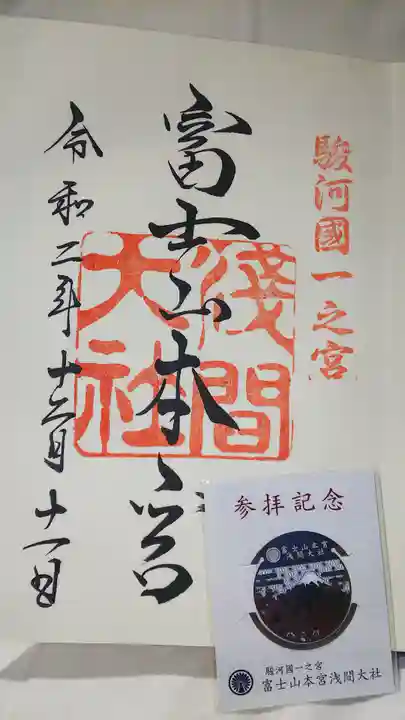 駿河國一之宮
富士山本宮
淺間
大社
令和二年十二月十一日
参拝記念
富士山本宮
浅間大社
駿河國一之宮
富士山本宮浅間大社